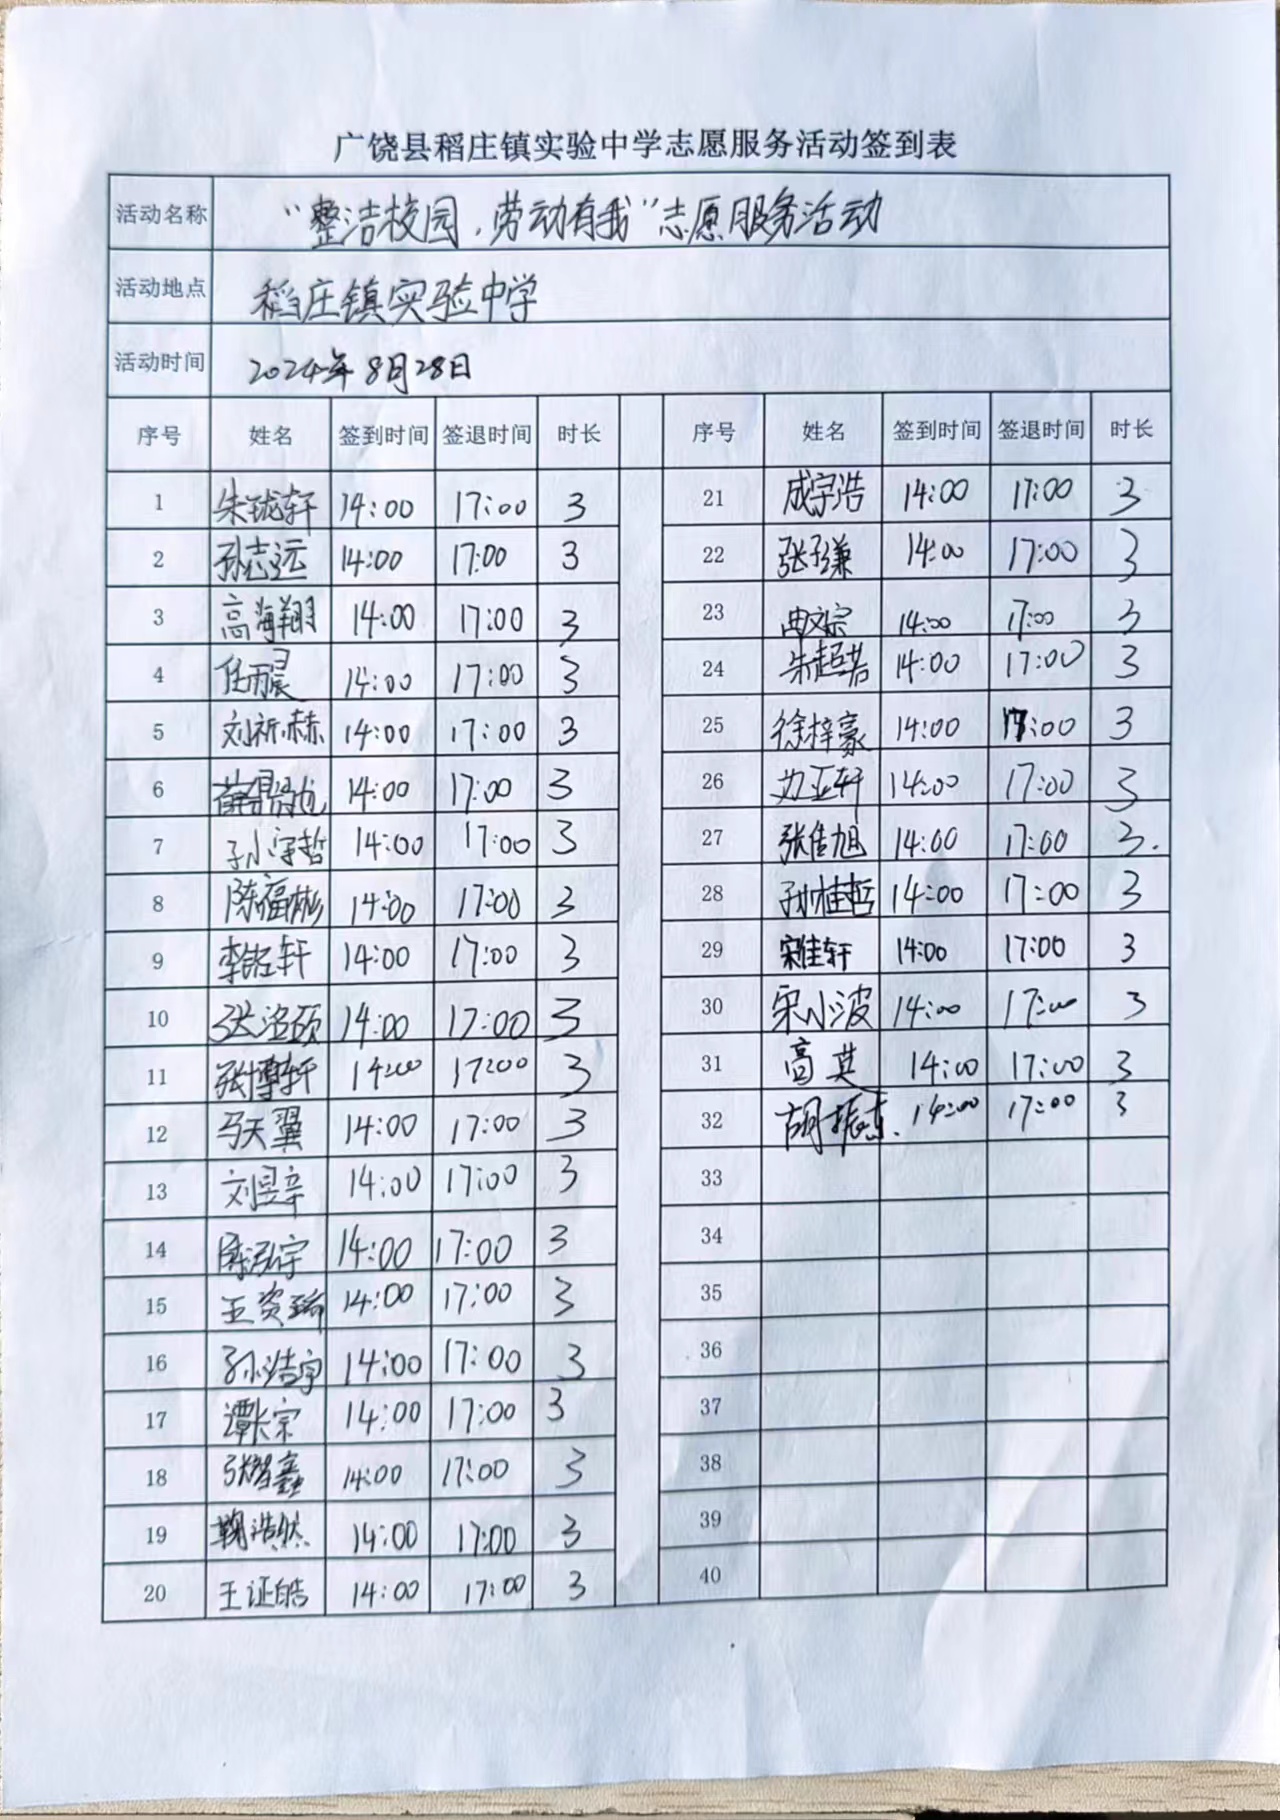 广饶县稻庄镇实验中学志愿服务活动签到表
活动名称 “整洁校园,劳动有我”志愿服务活动
活动地点 稻庄镇实验中学
活动时间 2024年8月28日
序号 姓名 签到时间 签退时间 时长 序号 姓名 签到时间 签退时间 时长
1 朱珑轩 14:00 17:00 3 21 成宇浩 14:00 17:00 3
2 孙志远 14:00 17:00 3 22 张子谦 14:00 17:00 3
3 高海翔 14:00 17:00 3 23 曲文宗 14:00 17:00 3
4 任雨晨 14:00 17:00 3 24 朱超若 14:00 17:00 3
5 刘祈赫 14:00 17:00 3 25 徐梓豪 14:00 17:00 3
6 14:00 17:00 3 26 苏亚轩 14:00 17:00 3
7 孙宇哲 14:00 17:00 3 27 张佳旭 14:00 17:00 3.
8 陈福彬 14:00 17:00 3 28 孙桂哲 14:00 17:00 3
9 李铭轩 14:00 17:00 3 29 宋佳轩 14:00 17:00 3
10 张洺硕 14:00 17:00 3 30 宋小波 14:00 17:00 3
11 张博轩 14:00 17:00 3 31 高英 14:00 17:00 3
12 马天翼 14:00 17:00 3 32 胡振东. 14:00 17:00 3
13 刘昱辛 14:00 17:00 3 33
14 陈泓宇 14:00 17:00 3 34
15 王资瑜 14:00 17:00 3 35
16 孙浩宇 14:00 17:00 3 36
17 谭长宗 14:00 17:00 3 37
18 张智鑫 14:00 17:00 3 38
19 鞠浩然 14:00 17:00 3 39
20 王证皓 14:00 17:00 3 40